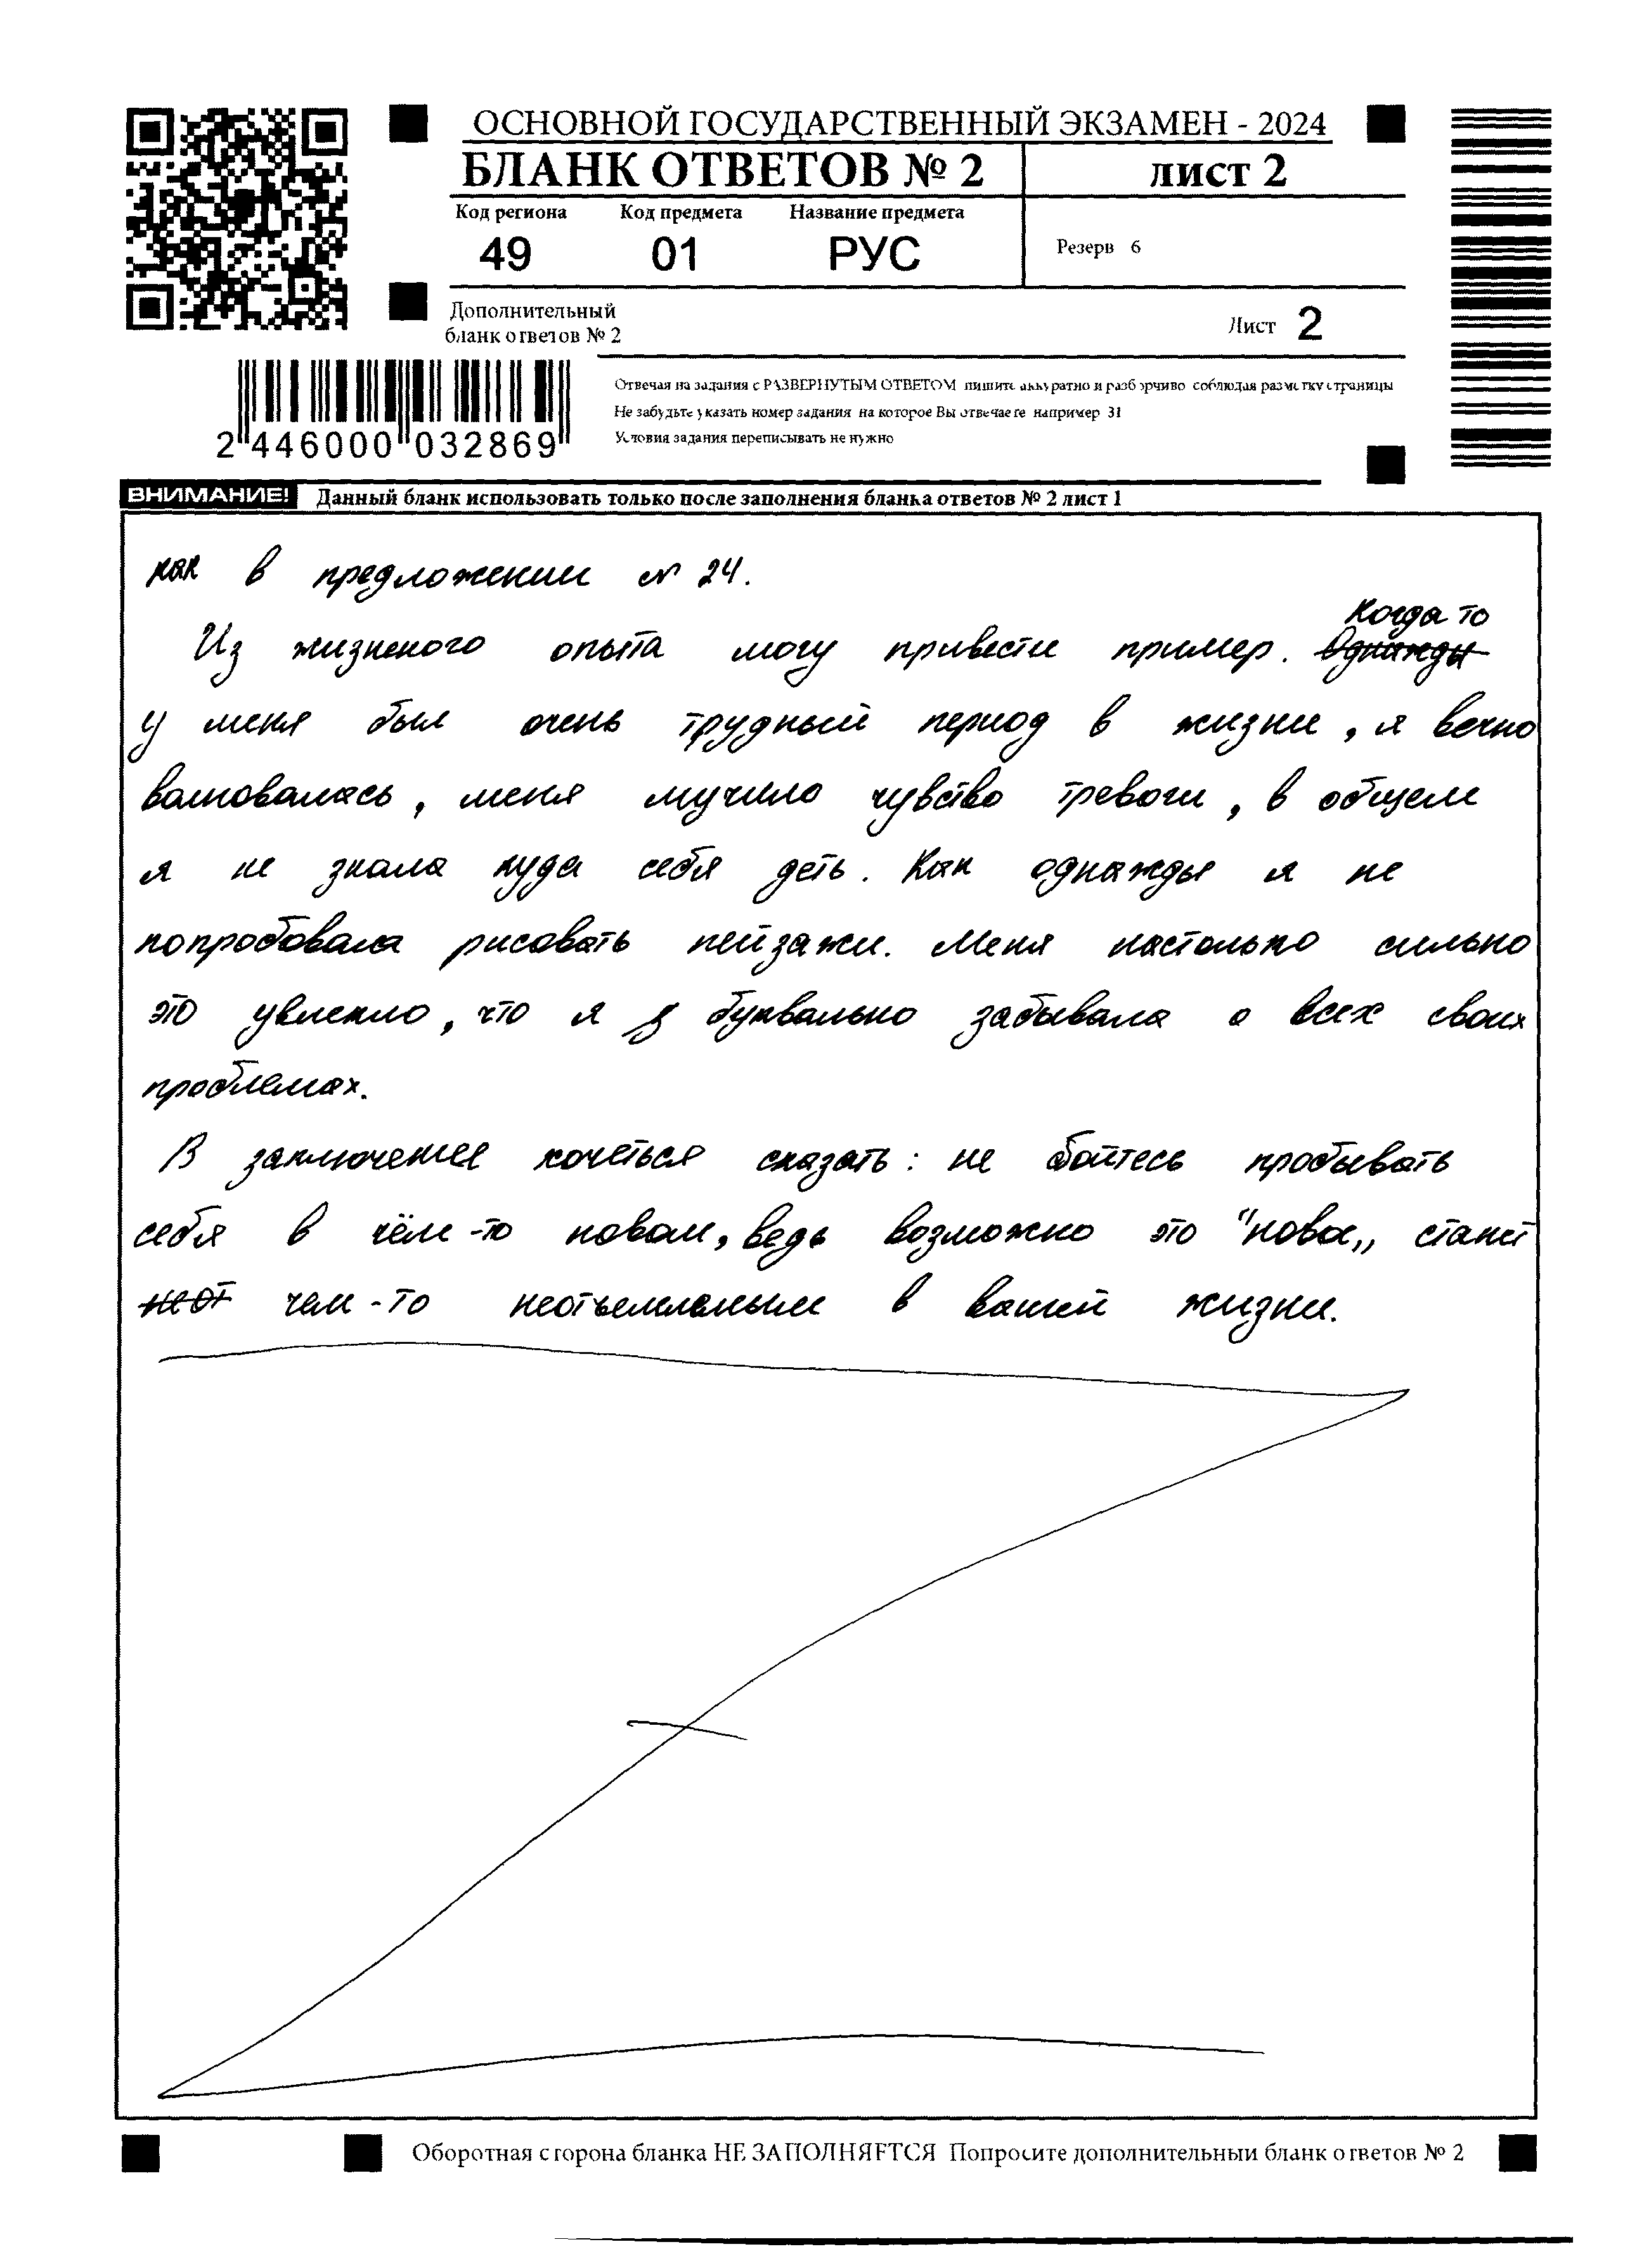 ОСНОВНОЙ ГОСУДАРСТВЕННЫЙ ЭКЗАМЕН - 2024
БЛАНК ОТВЕТОВ № 2 лист 2
Код региона Код предмета Название предмета
49 01 РУС Резерв 6
Дополнительный
бланк ответов № 2
Лист 2
Отвечая на задания с РАЗВЕРНУТЫМ ОТВЕТОМ пишите аккуратно и разборчиво соблюдая разметку страницы
Не забудьте указать номер задания на которое Вы отвечаете например 31
Условия задания переписывать не нужно
2 446000 032869
ВНИМАНИЕ! Данный бланк использовать только после заполнения бланка ответов № 2 лист 1
как в предложении № 24.
Когда то
Из жизненого опыта могу привести пример. Однажды
у меня был очень трудный период в жизни, я вечно
волновалась, меня мучило чувство тревоги, в общем
я не знала куда себя деть. Как однажды я не
попробовала рисовать пейзажи. Меня настолько сильно
это увлекло, что я буквально забывала о всех своих
проблемах.
В заключение хочеться сказать: не бойтесь пробывать
себя в чём-то новом, ведь возможно это "ново„ станет
неот чем-то неотъемлемым в вашей жизни.
Оборотная сторона бланка НЕ ЗАПОЛНЯЕТСЯ Попросите дополнительный бланк ответов № 2